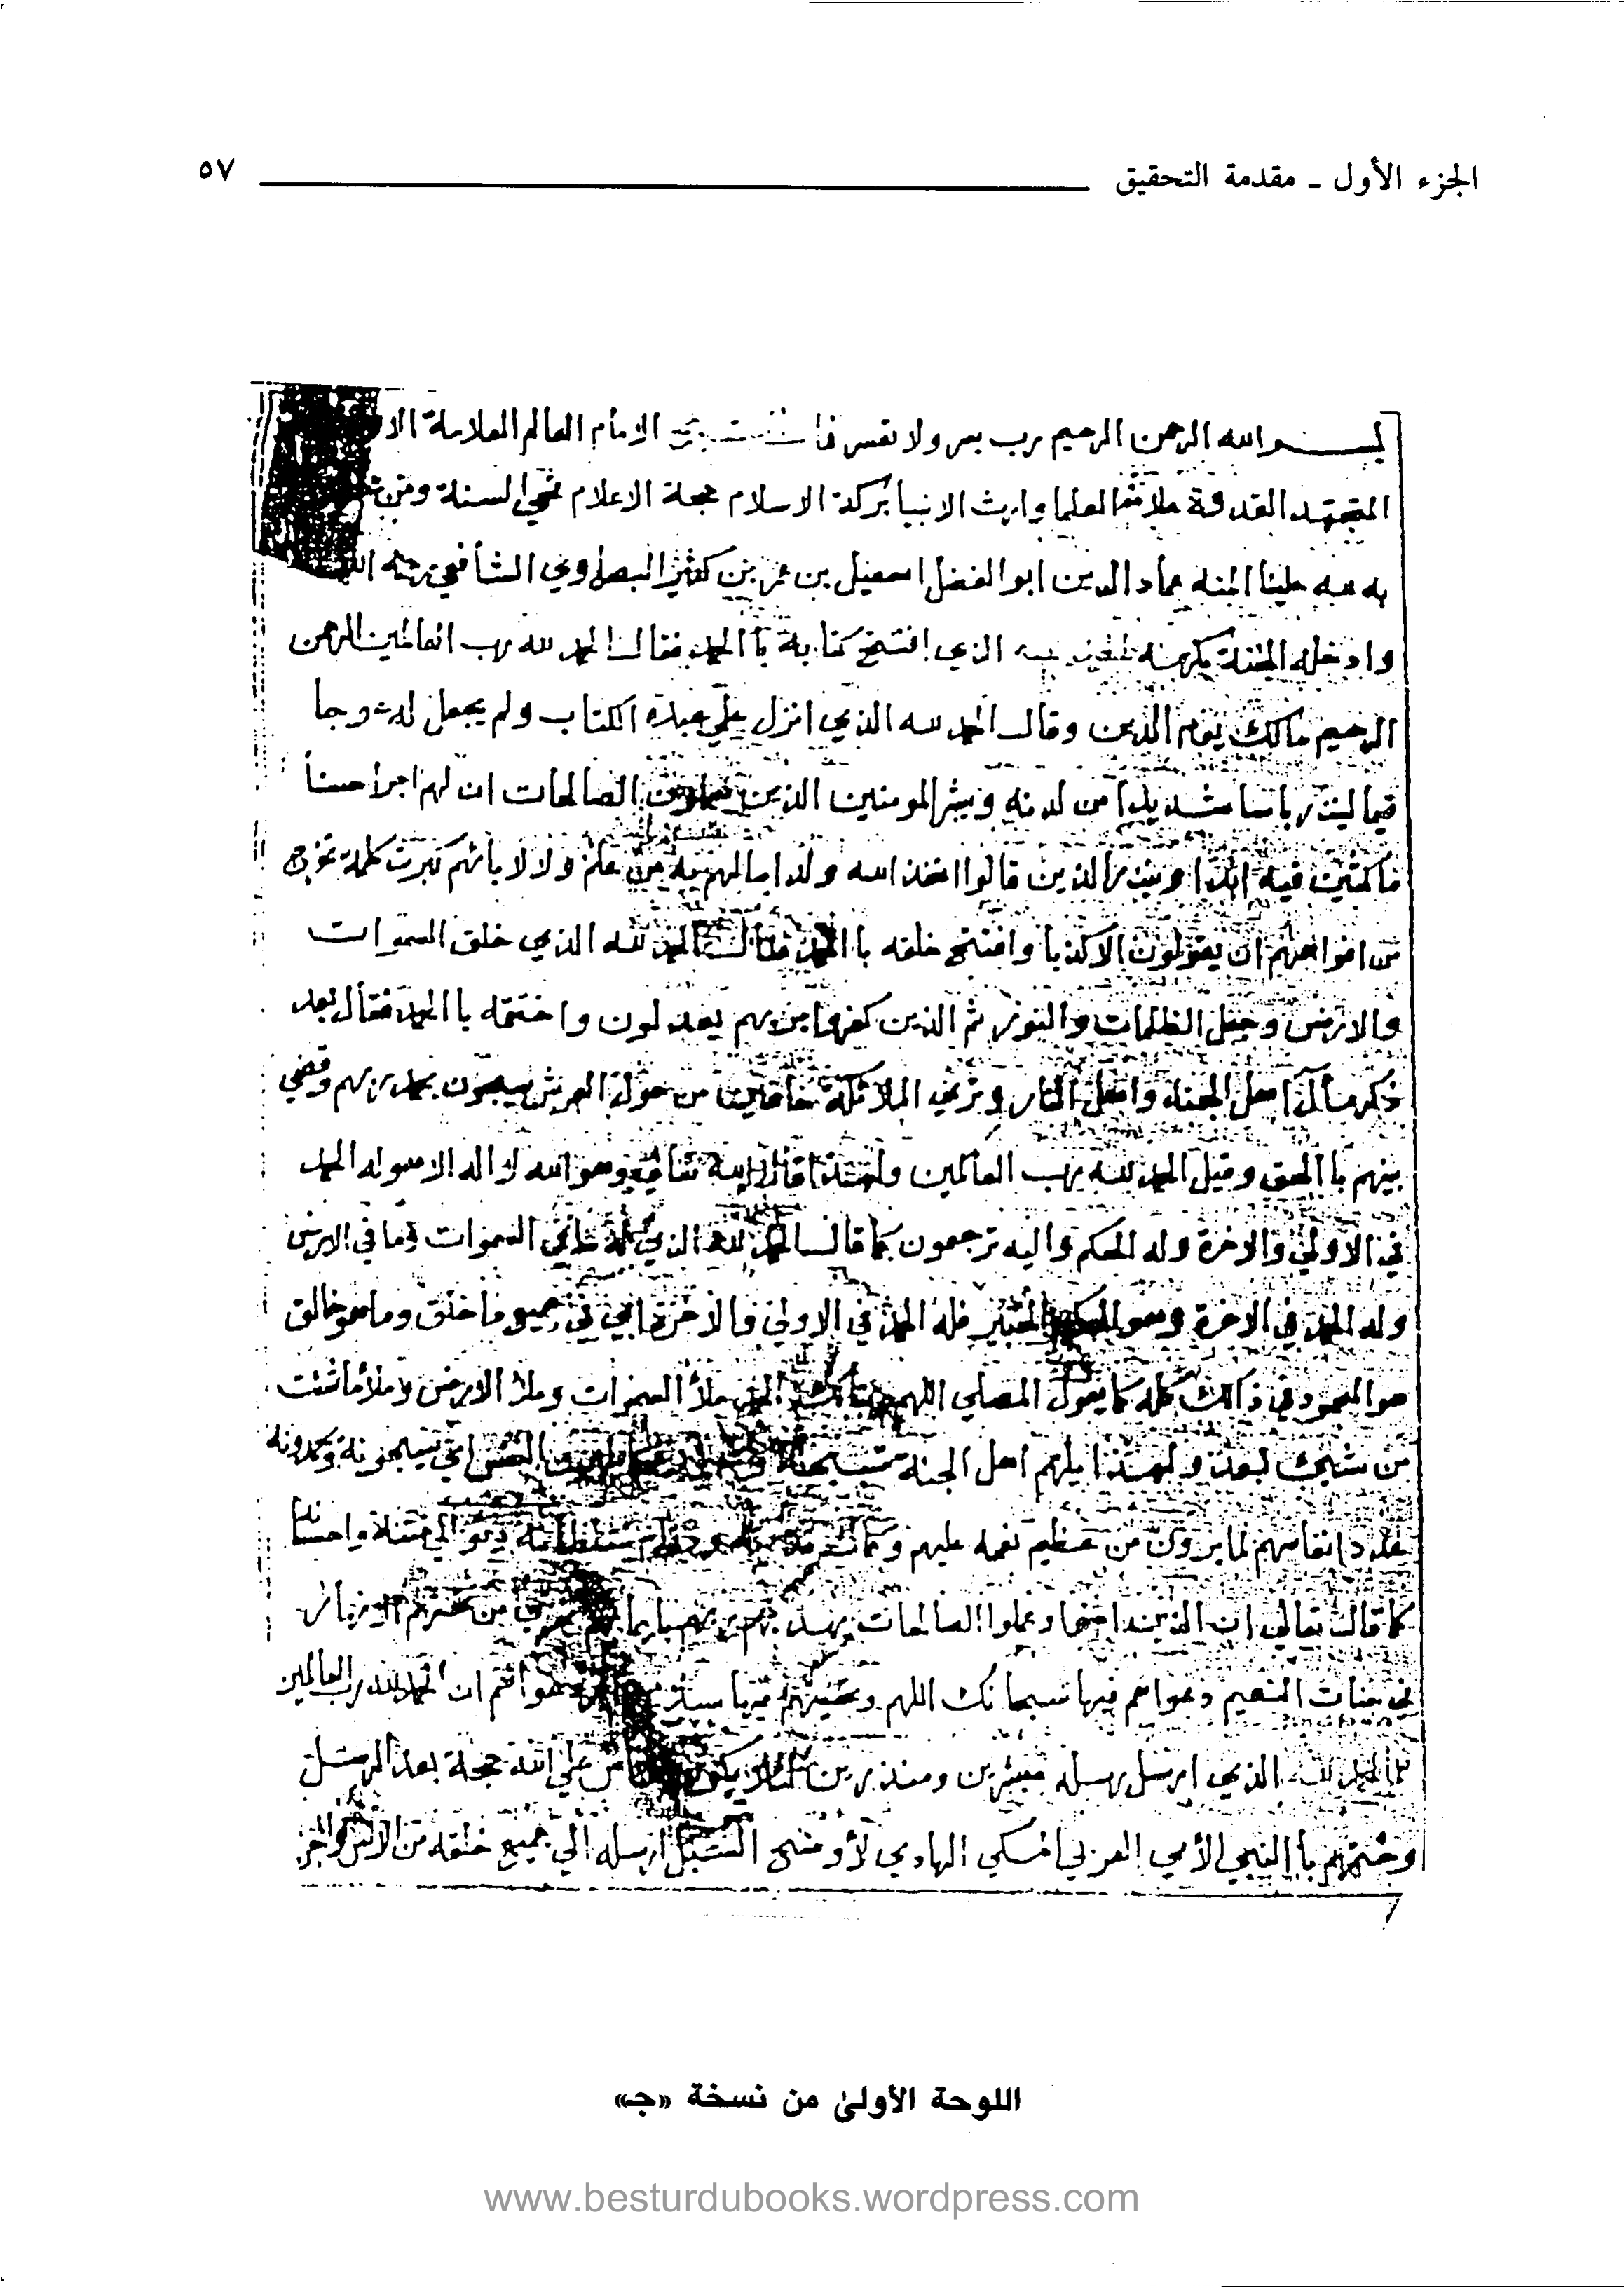 الجزء الأول ـ مقدمة التحقيق ٥٧
بسم الله الرحمن الرحيم رب يسر ولا تعسر الامام العالم العلامة
المجتهد القدوة العلما وارث الانبيا بركة الاسلام حجة الاعلام محي السنة ومن
به علينا المنه عماد الدين ابو الفضل اسمعيل بن عمر بن كثير البصراوي الشافعي
وادخله الجنة بكرمه الذي افتتح كتابه باالحمد فقال الحمد لله رب العالمين الرحمن
الرحيم مالك يوم الدين وقال الحمد لله الذي انزل على عبده الكتاب ولم يجعل له عوجا
قيما لينذر باسا شديدا من لدنه ويبشر المومنين الذين يعملون الصالحات ان لهم اجرا حسنا
ماكثين فيه ابدا وينذر الذين قالوا اتخذ الله ولدا مالهم به من علم ولا لابائهم كبرت كلمة تخرج
من افواههم ان يقولون الا كذبا وافتتح خلقه باالحمد فقال الحمد لله الذي خلق السموات
والارض وجعل الظلمات والنور ثم الذين كفروا بربهم يعدلون واختتمه باالحمد فقال بعد
ذكر مآل اهل الجنة واهل النار وترى الملائكة حافين من حول العرش يسبحون بحمد ربهم وقضي
بينهم باالحق وقيل الحمد لله رب العالمين ولهذا قال الله تعالى وهو الله لا اله الا هو له الحمد
في الاولى والاخرة وله الحكم واليه ترجعون كما قال الحمد لله الذي له ما في السموات وما في الارض
وله الحمد في الاخرة وهو الحكيم الخبير فله الحمد في الاولى والاخرة اي في جميع ما خلق وما هو خالق
هو المحمود في ذالك كله كما يقول المصلي اللهم ربنا لك الحمد ملأ السموات وملأ الارض وملأ ما شئت
من شيئ بعد ولهذا يلهم اهل الجنة تسبيحه النفس اي يسبحونه ويحمدونه
عدد انفاسهم لما يرون من عظيم نعمه عليهم
كما قال تعالى ان الذين امنوا وعملوا الصالحات يهديهم ربهم بايمانهم تجري من تحتهم الانهار
في جنات النعيم دعواهم فيها سبحانك اللهم وتحيتهم فيها سلام دعواهم ان الحمد لله رب العالمين
الحمد لله الذي ارسل رسله مبشرين ومنذرين لئلا يكون للناس على الله حجة بعد الرسل
وختمهم باالنبي الأمي العربي المكي الهادي لأوضح السبل ارسله الى جميع خلقه من الانس والجن
اللوحة الأولىٰ من نسخة «جـ»
www.besturdubooks.wordpress.com